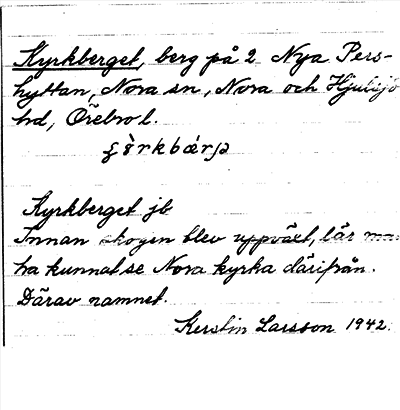 Kyrkberget, berg på 2 Nya Pers-
hyttan, Nora sn, Nora och Hjulsjö
hd, Örebro l.
Kyrkberget jb
Innan skogen blev uppväxt, lär ma
ha kunnat se Nora kyrka därifrån.
Därav namnet.
Kerstin Larsson 1942.